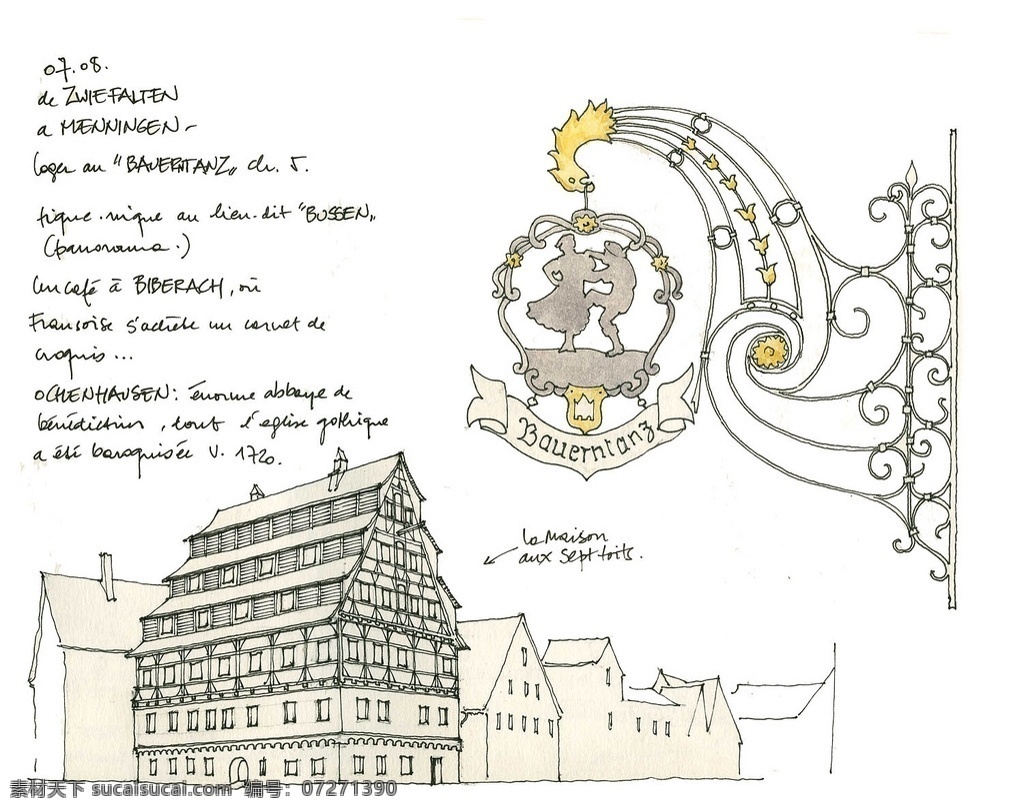 07.08.
de ZWIEFALTEN
a MEMNINGEN -
loger au "BAUERNTANZ" ch. 5.
pique-nique au lieu-dit "BUSSEN"
(panorama.)
un café à BIBERACH, où
Françoise s'achète un carnet de
croquis...
OCHENHAUSEN: énorme abbaye de
bénédictins, tout l'église gothique
a été baroquisée v. 1720.
Bauerntanz
la maison
aux sept toits.
素材天下 sucaisucai.com 编号：07271390